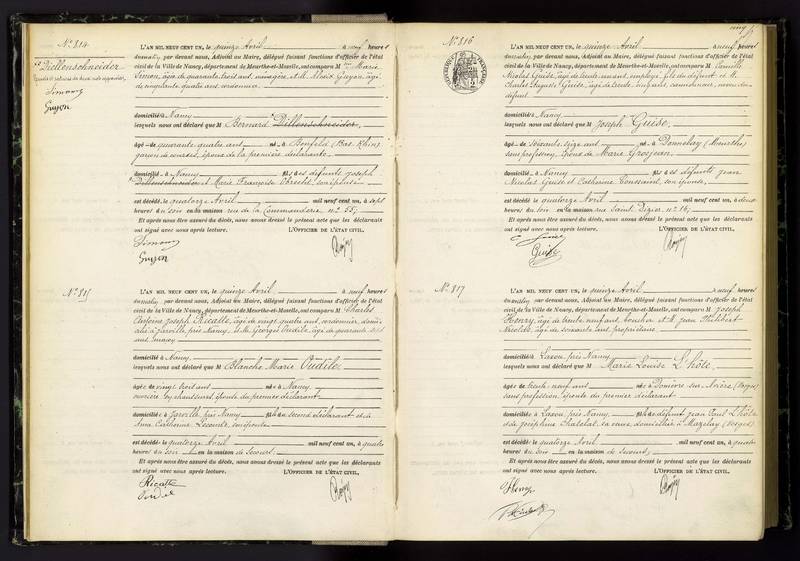 N.º 814
Diellenschneider
Simon
Guyon
L'AN MIL NEUF CENT UN, le quinze Avril à neuf heures
du matin, par devant nous, Adjoint au Maire, délégué faisant fonctions d'officier de l'état
civil de la Ville de Nancy, département de Meurthe-et-Moselle, ont comparu M Marie
Simon, âgée de quarante trois ans, ménagère, et M. Alexis Guyon, âgé
de cinquante quatre ans, cordonnier.
domiciliés à Nancy
lesquels nous ont déclaré que M Bernard Dillenschneider,
âgé de quarante quatre ans né à Benfeld (Bas-Rhin)
époux de la première déclarante
domicilié à Nancy fils des défunts Joseph
Dillenschneider et Marie Françoise son épouse
est décédé le quatorze Avril mil neuf cent un, à sept
heures du soir en la maison rue de la Commanderie, nº 55,
Et après nous être assuré du décès, nous avons dressé le présent acte que les déclarants
ont signé avec nous après lecture. L'OFFICIER DE L'ÉTAT CIVIL,
Simon
Guyon
N.º 815
L'AN MIL NEUF CENT UN, le quinze Avril à neuf heures
du matin, par devant nous, Adjoint au Maire, délégué faisant fonctions d'officier de l'état
civil de la Ville de Nancy, département de Meurthe-et-Moselle, ont comparu M Charles
Antoine Joseph Ricatte, âgé de vingt quatre ans, cordonnier, domi-
cilié à Jarville près Nancy, et M. Georges Oudile, âgé de quarante sept
ans,
domicilié à Nancy
lesquels nous ont déclaré que M Blanche Marie Oudile,
âgée de vingt trois ans née à Nancy
ouvrière en chaussures, épouse du premier déclarant
domiciliée à Jarville près Nancy fille du second déclarant et de
Anna Catherine son épouse
est décédée le quatorze Avril mil neuf cent un, à quatre
heures du soir en la maison de Secours,
Et après nous être assuré du décès, nous avons dressé le présent acte que les déclarants
ont signé avec nous après lecture. L'OFFICIER DE L'ÉTAT CIVIL,
Ricatte
Oudile
N.º 816
L'AN MIL NEUF CENT UN, le quinze Avril à neuf heures
du matin, par devant nous, Adjoint au Maire, délégué faisant fonctions d'officier de l'état
civil de la Ville de Nancy, département de Meurthe-et-Moselle, ont comparu M Camille
Nicolas Guise, âgé de trente ans, employé, fils du défunt et M.
Charles Auguste Guise, âgé de trente cinq ans, camionneur, neveu du
défunt
domiciliés à Nancy
lesquels nous ont déclaré que M Joseph Guise,
âgé de soixante seize ans né à Donnelay (Meurthe)
sans profession, époux de Marie Grosjean
domicilié à Nancy fils des défunts Jean
Nicolas Guise et Catherine Toussaint, son épouse,
est décédé le quatorze Avril mil neuf cent un, à deux
heures du soir en la maison rue Saint Dizier, nº 167,
Et après nous être assuré du décès, nous avons dressé le présent acte que les déclarants
ont signé avec nous après lecture. L'OFFICIER DE L'ÉTAT CIVIL,
Guise
N.º 817
L'AN MIL NEUF CENT UN, le quinze Avril à neuf heures
du matin, par devant nous, Adjoint au Maire, délégué faisant fonctions d'officier de l'état
civil de la Ville de Nancy, département de Meurthe-et-Moselle, ont comparu M Joseph
Henry, âgé de trente neuf ans, et M Jean Philibert
Nicolas, âgé de soixante ans, propriétaire
domiciliés à Laxou près Nancy
lesquels nous ont déclaré que M Marie Louise L'hôte,
âgée de trente neuf ans née à (Vosges)
sans profession, épouse du premier déclarant
domiciliée à Laxou, près Nancy fille de défunt Jean Paul L'hôte
et de Joséphine sa veuve, domiciliée à Mazelay (Vosges)
est décédée le quatorze Avril mil neuf cent un, à quatre
heures du soir en la maison de Secours,
Et après nous être assuré du décès, nous avons dressé le présent acte que les déclarants
ont signé avec nous après lecture. L'OFFICIER DE L'ÉTAT CIVIL,
Henry